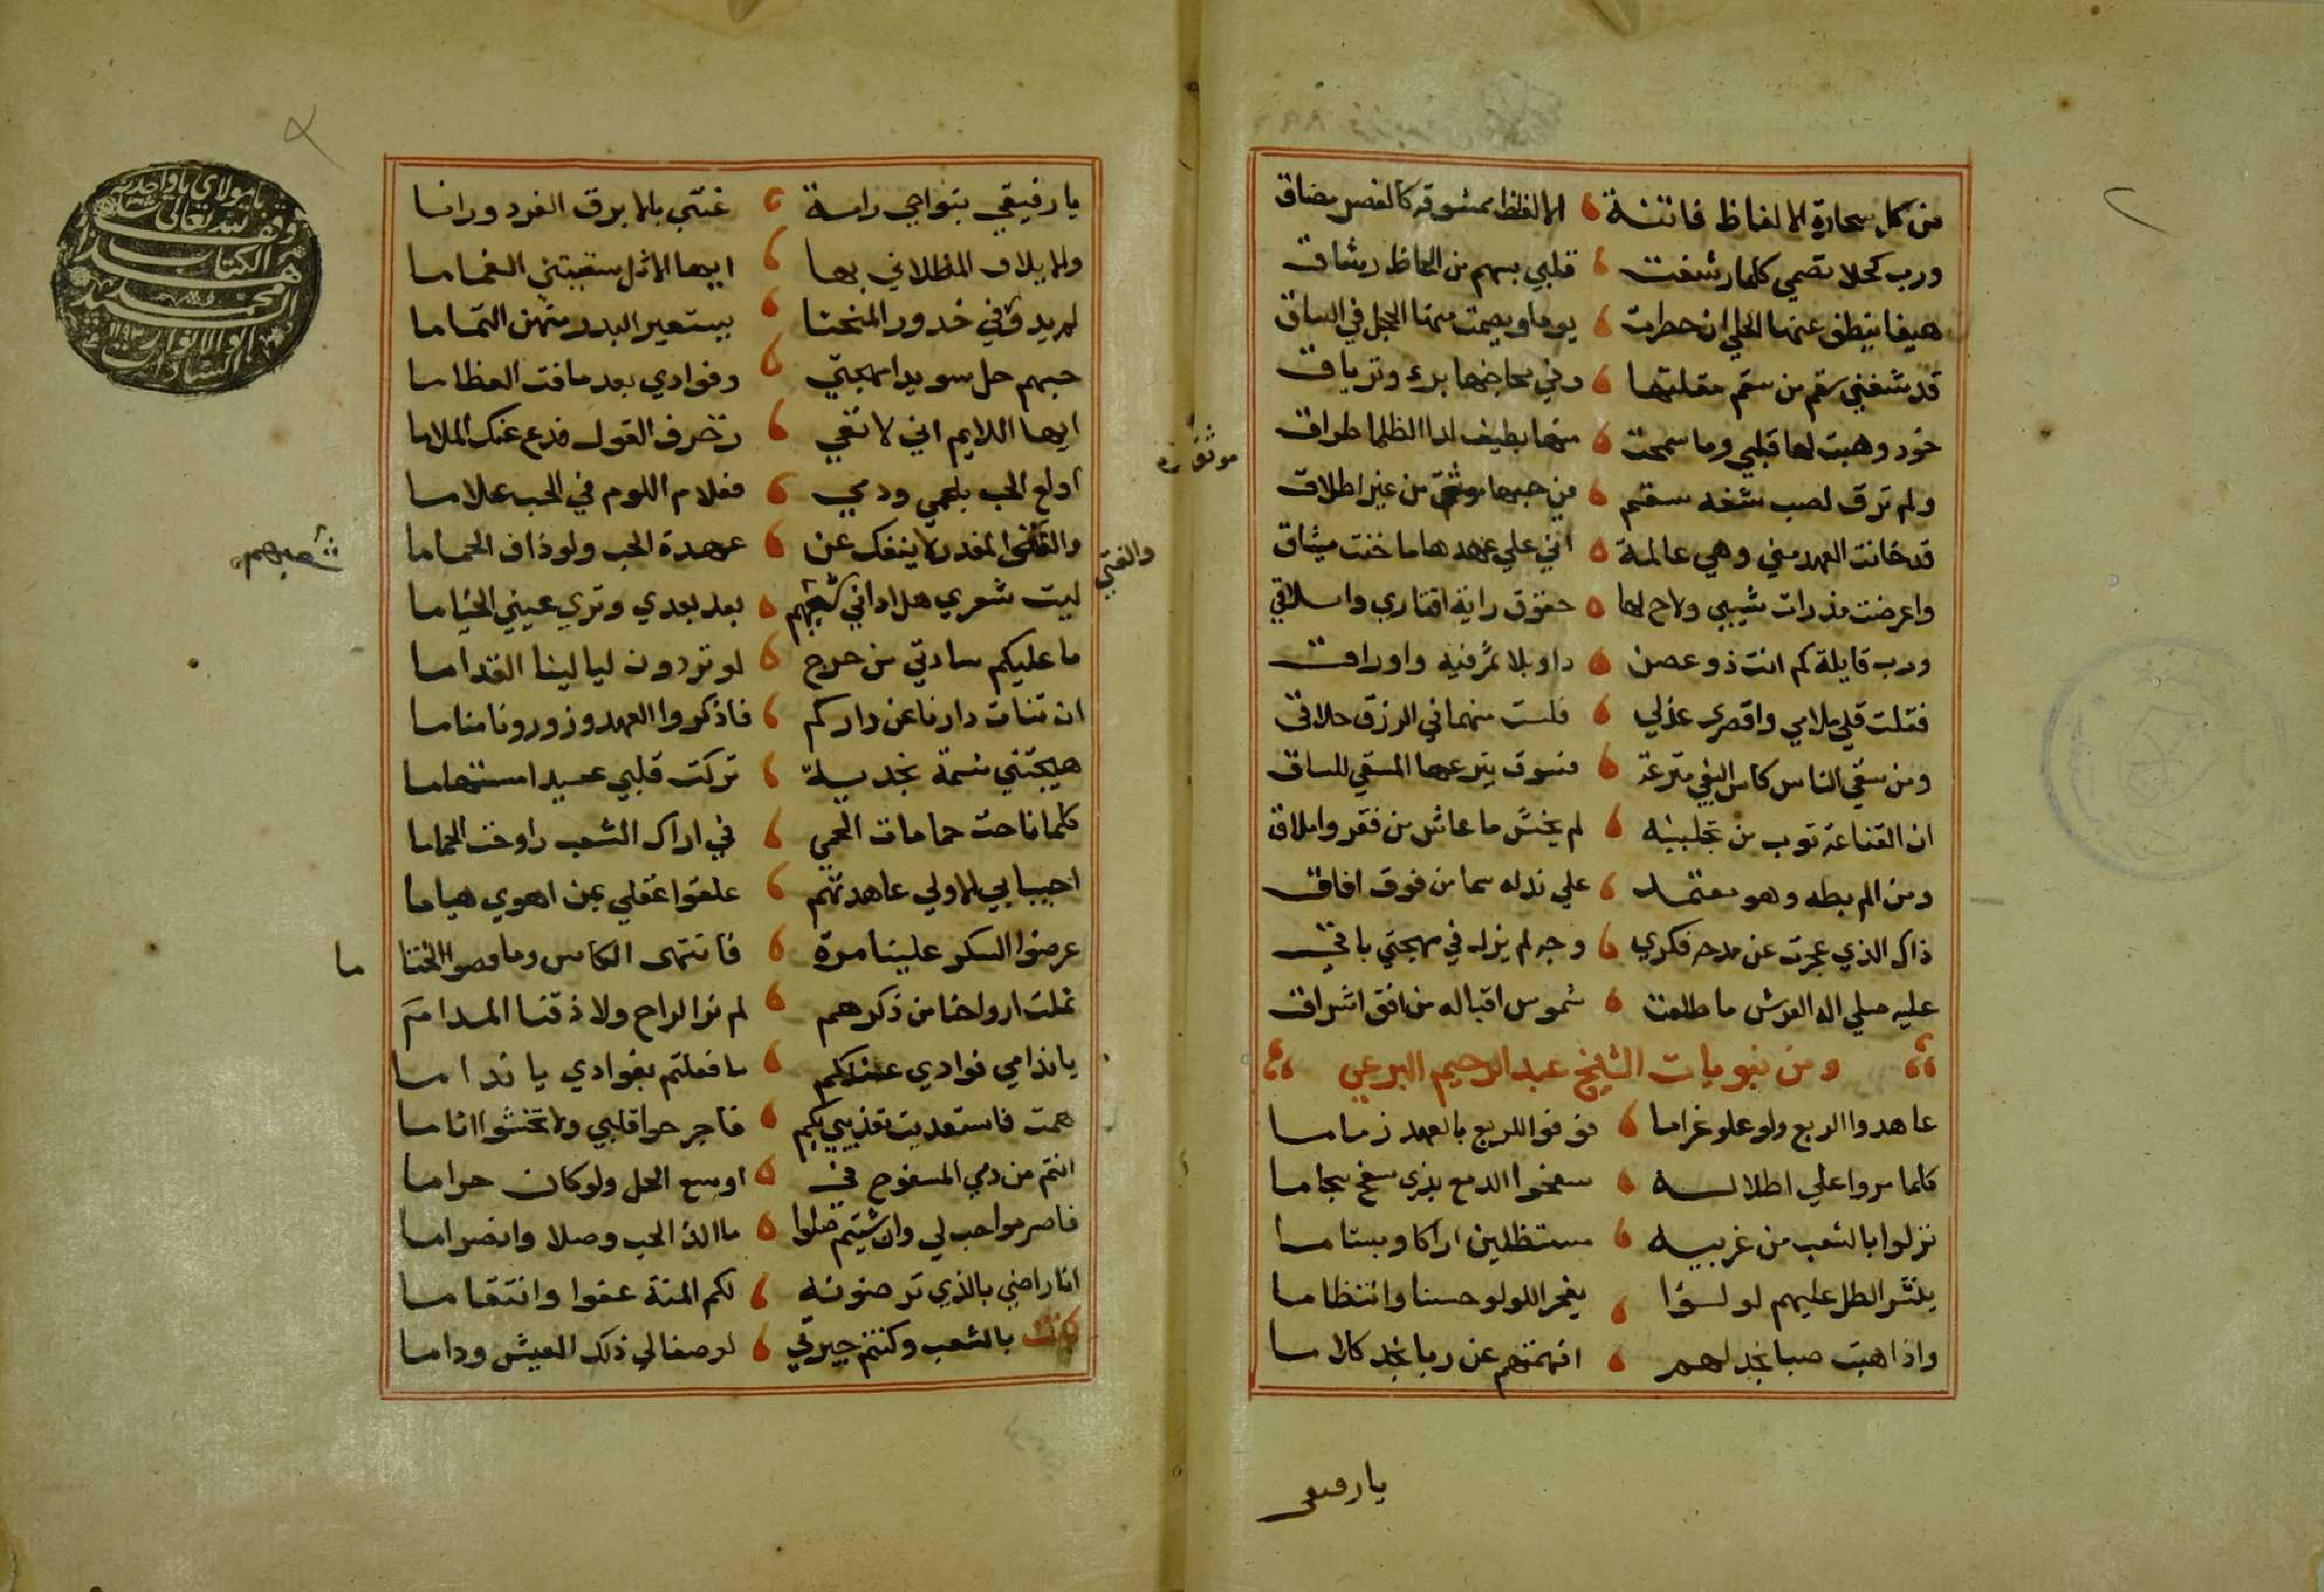 من كل سحارة الالفاظ فاتنة الالفاظ ممشوقة كالغصن مضاق
ورب كحلا تصمي كلما رشقت قلبي بسهم من الحاظ رشاق
هيفا ينطق عنها الحلي ان خطرت يوما ويصمت منها الحجل في الساق
قد شفني سقم من سقم مقلتها وفي محاجرها برء وترياق
خود وهبت لها قلبي وما سمحت منها بطيف لدا الظلما طراق
ولم ترق لصب شفه سقم من حبها موثق من غير اطلاق
قد خانت العهد مني وهي عالمة اني علي عهدها ما خنت ميثاق
واعرضت مذ رات شيبي ولاح لها حقوق راية اقتاري واملاقي
ورب قايلة كم انت ذو غصن داو بلا ثمر فيه واوراق
فقلت قلي ملامي واقصري عذلي فلست منهما في الرزق خلاقي
ومن سقي الناس كاس البغي مترعة فسوف يترعها المسقي للساق
ان القناعة ثوب من تجلببه لم يخش ما عاش من فقر واملاق
ومن الم بطه وهو معتمد علي نداه سما من فوق افاق
ذاك الذي عجزت عن مدحه فكري وحبه لم يزل في مهجتي باقي
عليه صلي اله العرش ما طلعت شموس اقباله من افق اشراق
ومن نبويات الشيخ عبد الرحيم البرعي
عاهدوا الربع ولوعا وغراما فوفوا للربع بالعهد ذماما
كلما مروا علي اطلاله سفحوا الدمع بذي سفح سجاما
نزلوا بالشعب من غربيه مستظلين اراكا وبشاما
ينثر الطل عليهم لولوا يفخر اللولو حسنا وانتظاما
واذا هبت صبا نجد لهم افهمتهم عن ربا نجد كلاما
يا رفيقي
موثقة
يا رفيقي بنواحي رامة غنني بالابرق الفرد وراما
والايلاف المطلاني بها ايها الاثل سقيتن الغماما
لم يذوقني خدور المنحنا يستعير البدر منهن التماما
حبهم حل سويدا مهجتي وفوادي بعد ما فت العظاما
ايها اللايم اني لا تقي زخرف القول فدع عنك الملاما
اولع الحب بلحمي ودمي فعلام اللوم في الحب علاما
والفتي المغدر لا ينفك عن عهدة الحب ولو ذاق الحماما
والفتي
ليت شعري هل اراني شعبهم بعد بعدي وتري عيني الخياما
شعبهم
ما عليكم سادتي من حرج لو تردون ليالينا القداما
ان تنات دارنا عن داركم فاذكروا العهد وزورونا مناما
هيجتني نسمة نجدية تركت قلبي عميدا مستهاما
كلما ناحت حمامات الحمي في اراك الشعب راوحت الحماما
احببابي الاولي عاهدتهم علقوا عقلي بمن اهوي هياما
عرضوا السكر علينا مرة فانتهي الكاس وما فضوا الختا
ما
ثملت ارواحنا من ذكرهم لم نر الراح ولا ذقنا المداما
يا نداميي فوادي عندكم ما فعلتم بفوادي يا نداما
همت فاستعذبت تعذيبي بكم فاجرحوا قلبي ولا تخشوا اثاما
انتم من دمي المسفوح في اوسع الحل ولو كان حراما
فاصرموا حبلي وان شيتم صلوا ما الذ الحب وصلا وانصراما
انا راضي بالذي ترضونه لكم المنة عفوا وانتقاما
كنت بالشعب وكنتم جيرتي لو صفا لي ذلك العيش وداما
يا مولاي يا واحد
وقف لله تعالي
هذا الكتاب
محمد
ابو الانوار
السادات